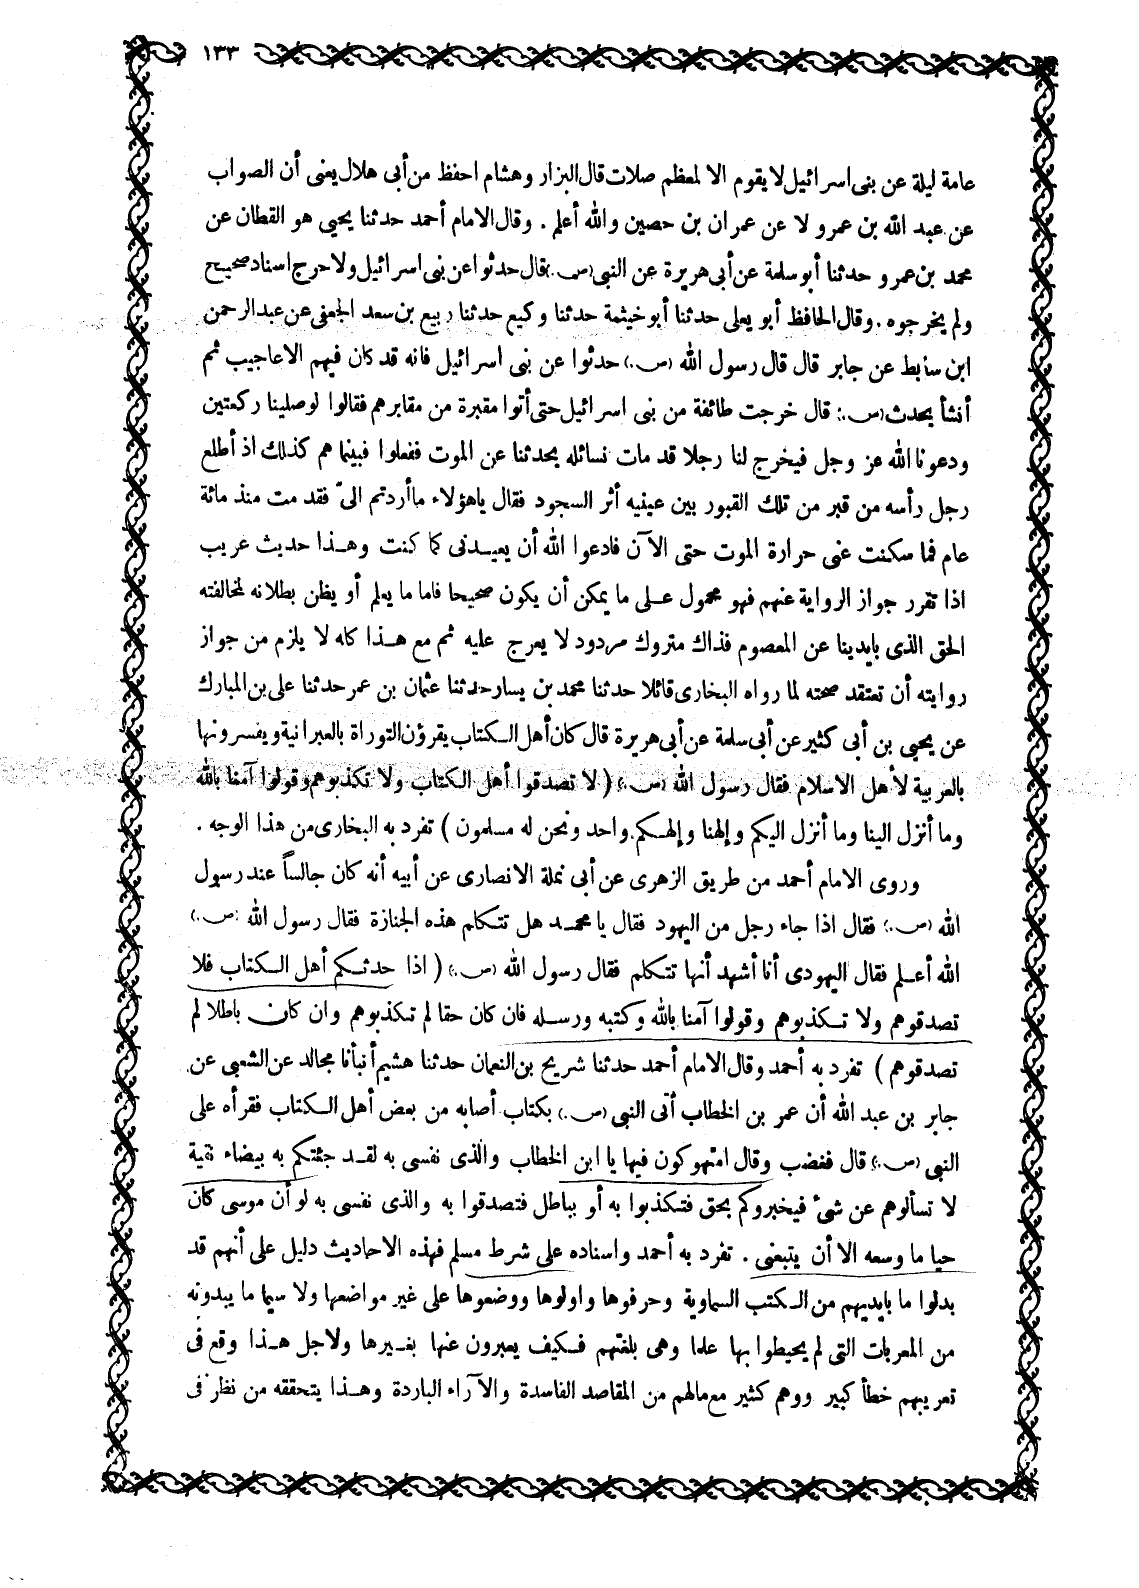 ١٣٣
عامة ليلة عن بنى اسرائيل لا يقوم الا لمعظم صلات قال البزار وهشام احفظ من أبى هلال يعنى أن الصواب
عن عبد الله بن عمرو لا عن عمران بن حصين والله أعلم . وقال الامام أحمد حدثنا يحيى هو القطان عن
محمد بن عمرو حدثنا أبو سلمة عن أبى هريرة عن النبى (ص.) قال حدثوا عن بنى اسرائيل ولا حرج اسناد صحيح
ولم يخرجوه . وقال الحافظ أبو يعلى حدثنا أبو خيثمة حدثنا وكيع حدثنا ربيع بن سعد الجعفى عن عبد الرحمن
ابن سابط عن جابر قال قال رسول الله (ص.) حدثوا عن بنى اسرائيل فانه قد كان فيهم الاعاجيب ثم
أنشأ يحدث (ص.) قال خرجت طائفة من بنى اسرائيل حتى أتوا مقبرة من مقابرهم فقالوا لو صلينا ركعتين
ودعونا الله عز وجل فيخرج لنا رجلا قد مات نسائله يحدثنا عن الموت ففعلوا فبينما هم كذلك اذ أطلع
رجل رأسه من قبر من تلك القبور بين عينيه أثر السجود فقال ياهؤلاء ما أردتم الىّ فقد مت منذ مائة
عام فما سكنت عنى حرارة الموت حتى الآن فادعوا الله أن يعيدنى كما كنت وهذا حديث غريب
اذا تقرر جواز الرواية عنهم فهو محمول على ما يمكن أن يكون صحيحا فاما ما يعلم أو يظن بطلانه لمخالفته
الحق الذى بايدينا عن المعصوم فذاك متروك مردود لا يعرج عليه ثم مع هذا كله لا يلزم من جواز
روايته أن تعتقد صحته لما رواه البخارى قائلا حدثنا محمد بن يسار حدثنا عثمان بن عمر حدثنا على بن المبارك
عن يحيى بن أبى كثير عن أبى سلمة عن أبى هريرة قال كان أهل الكتاب يقرؤن التوراة بالعبرانية ويفسرونها
بالعربية لأهل الاسلام فقال رسول الله (ص.) ( لا تصدقوا أهل الكتاب ولا تكذبوهم وقولوا آمنا بالله
وما أنزل الينا وما أنزل اليكم وإلهنا وإلهكم واحد ونحن له مسلمون ) تفرد به البخارى من هذا الوجه .
وروى الامام أحمد من طريق الزهرى عن أبى نملة الانصارى عن أبيه أنه كان جالساً عند رسول
الله (ص.) فقال اذا جاء رجل من اليهود فقال يا محمد هل تتكلم هذه الجنازة فقال رسول الله (ص.)
الله أعلم فقال اليهودى أنا أشهد أنها تتكلم فقال رسول الله (ص.) ( اذا حدثكم أهل الكتاب فلا
تصدقوهم ولا تكذبوهم وقولوا آمنا بالله وكتبه ورسله فان كان حقا لم تكذبوهم وان كان باطلا لم
تصدقوهم ) تفرد به أحمد وقال الامام أحمد حدثنا شريح بن النعمان حدثنا هشيم أنبأنا مجالد عن الشعبى عن
جابر بن عبد الله أن عمر بن الخطاب أتى النبى (ص.) بكتاب أصابه من بعض أهل الكتاب فقرأه على
النبى (ص.) قال فغضب وقال امتهوكون فيها يا ابن الخطاب والذى نفسى به لقد جئتكم به بيضاء نقية
لا تسألوهم عن شئ فيخبروكم بحق فتكذبوا به أو بباطل فتصدقوا به والذى نفسى به لو أن موسى كان
حيا ما وسعه الا أن يتبعنى . تفرد به أحمد واسناده على شرط مسلم فهذه الاحاديث دليل على أنهم قد
بدلوا ما بايديهم من الكتب السماوية وحرفوها واولوها ووضعوها على غير مواضعها ولا سيما ما يبدونه
من المعربات التى لم يحيطوا بها علما وهى بلغتهم فكيف يعبرون عنها بغيرها ولاجل هذا وقع فى
تعريبهم خطأ كبير ووهم كثير مع مالهم من المقاصد الفاسدة والآراء الباردة وهذا يتحققه من نظر فى